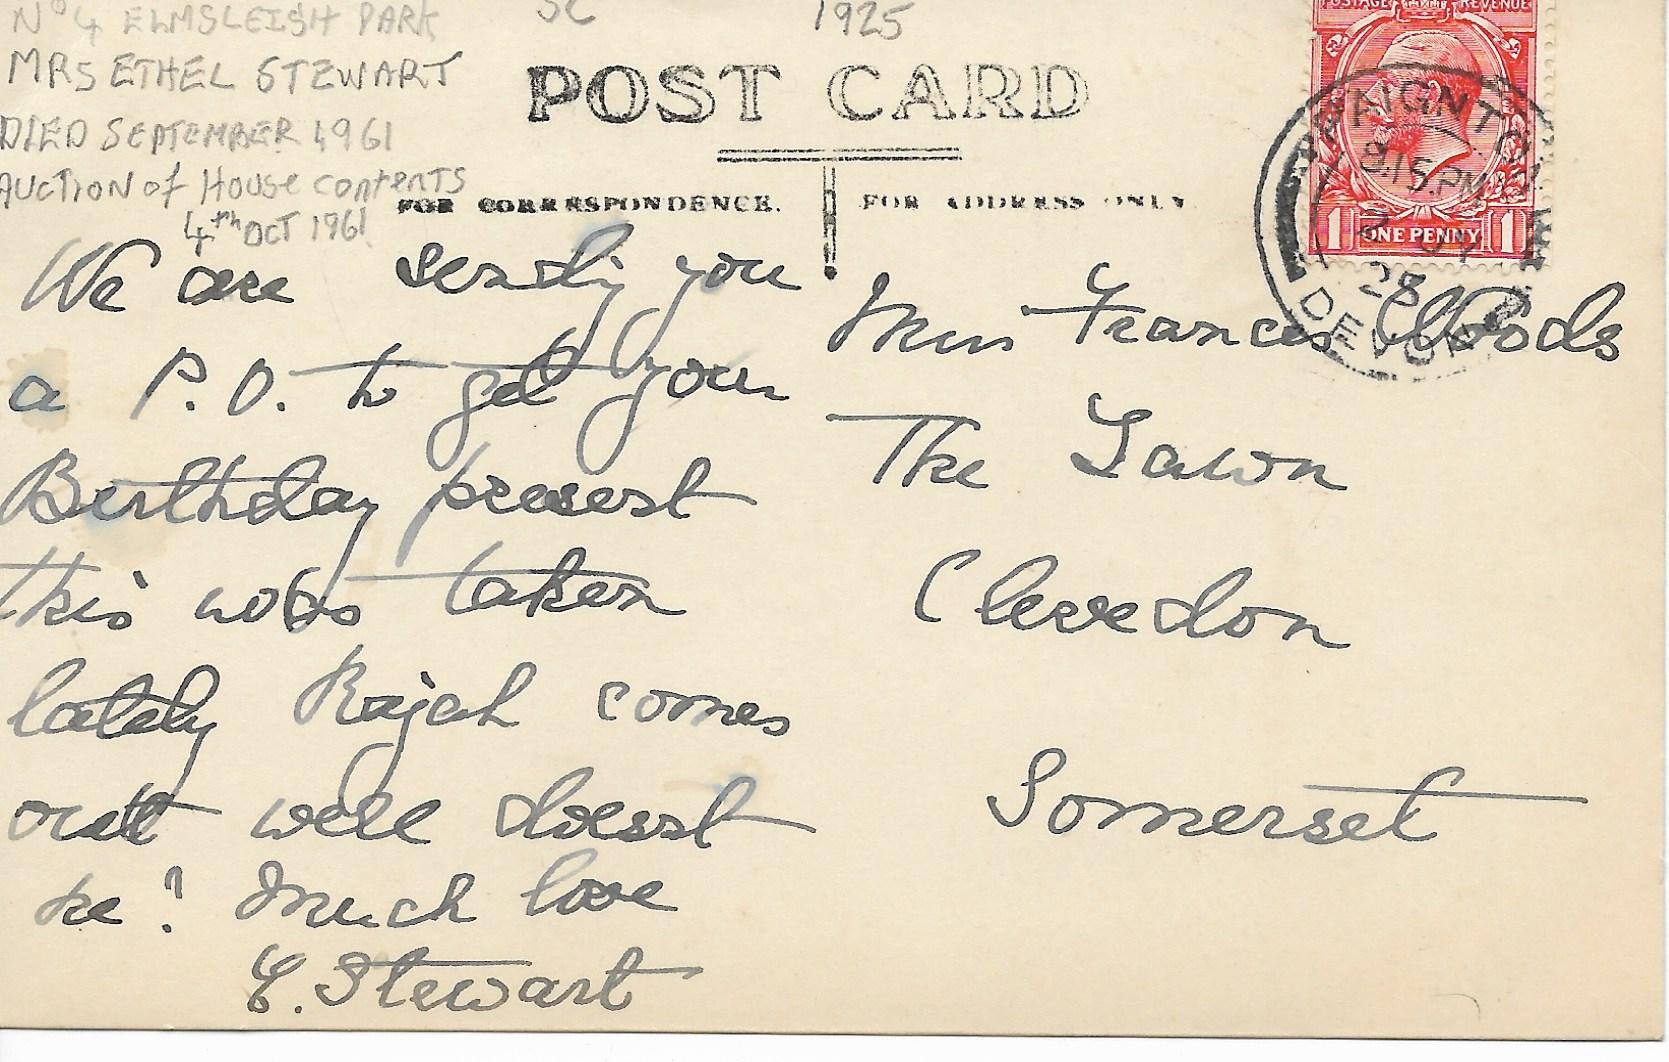 No 4 ELMSLEIGH PARK
MRS ETHEL STEWART
DIED SEPTEMBER 1961
AUCTION of House contents
4th OCT 1961
1925
POST CARD
FOR CORRESPONDENCE.
FOR ADDRESS ONLY
POSTAGE REVENUE
ONE PENNY
1 1
PAIGNTON
9.15 PM
25
DEVON
We are sending you
a P.O. to get your
Birthday present
this was taken
lately Rajah comes
out well doesnt
he? Much love
E. Stewart
Miss Frances Woods
The Lawn
Clevedon
Somerset